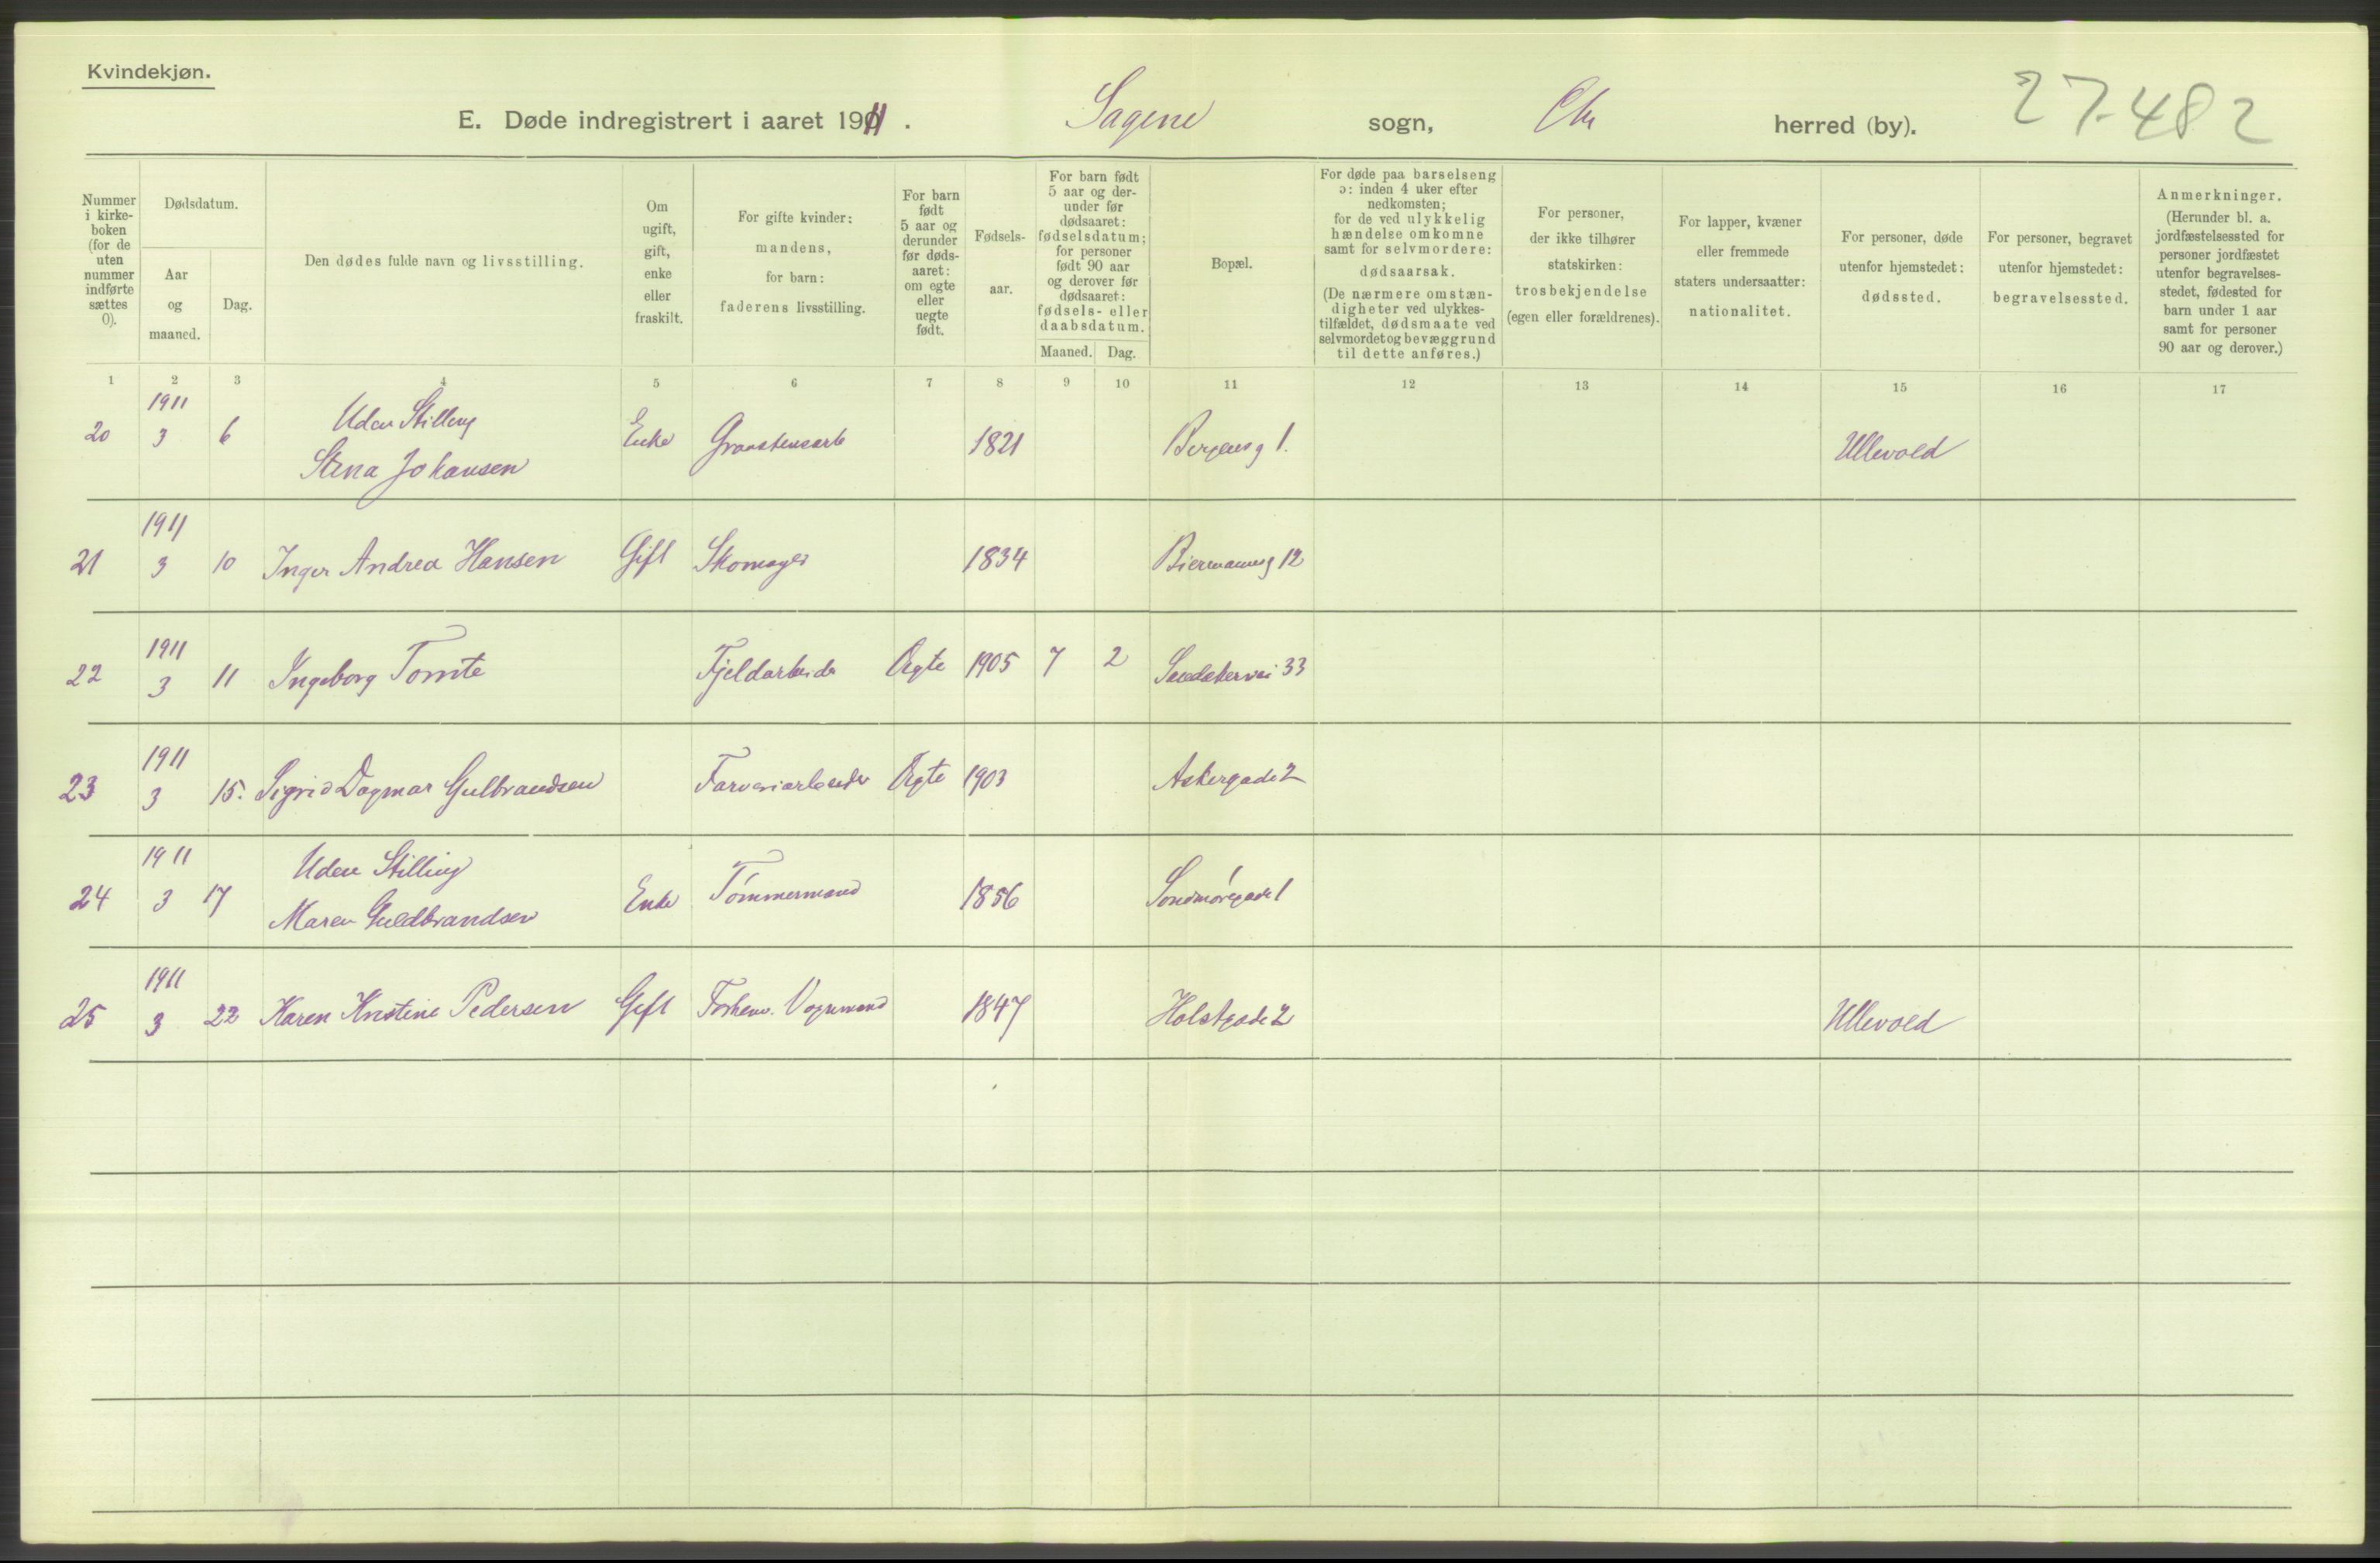 Kvindekjøn.
E. Døde indregistrert i aaret 1911. Sagene sogn, Chr herred (by). 27-482
Nummer i kirke-boken (for de uten nummer indførte sættes 0).
Dødsdatum.
Aar og maaned.
Dag.
Den dødes fulde navn og livsstilling.
Om ugift, gift, enke eller fraskilt.
For gifte kvinder: mandens, for barn: faderens livsstilling.
For barn født 5 aar og derunder før døds-aaret: om egte eller uegte født.
Fødsels-aar.
For barn født 5 aar og der-under før dødsaaret: fødselsdatum; for personer født 90 aar og derover før dødsaaret: fødsels- eller daabsdatum.
Maaned. Dag.
Bopæl.
For døde paa barselseng ɔ: inden 4 uker efter nedkomsten; for de ved ulykkelig hændelse omkomne samt for selvmordere: dødsaarsak. (De nærmere omstæn-digheter ved ulykkes-tilfældet, dødsmaate ved selvmordet og bevæggrund til dette anføres.)
For personer, der ikke tilhører statskirken: trosbekjendelse (egen eller forældrenes).
For lapper, kvæner eller fremmede staters undersaatter: nationalitet.
For personer, døde utenfor hjemstedet: dødssted.
For personer, begravet utenfor hjemstedet: begravelsessted.
Anmerkninger. (Herunder bl. a. jordfæstelsessted for personer jordfæstet utenfor begravelses-stedet, fødested for barn under 1 aar samt for personer 90 aar og derover.)
1 2 3 4 5 6 7 8 9 10 11 12 13 14 15 16 17
1911 Uden Stilling
20 3 6 Stina Johansen Enke Graastensarb 1821 Bergensg 1. Ullevold
1911
21 3 10 Inger Andrea Hansen Gift Skomager 1834 Biermannsg 12
1911
22 3 11 Ingeborg Tomte Fjeldarbeider Ægte 1905 7 2 Sandakervei 33
1911
23 3 15. Sigrid Dagmar Gulbrandsen Farveriarbeider Ægte 1903 Askergade 2
1911 Uden Stilling
24 3 17 Maren Guldbrandsen Enke Tømmermand 1856 Søndmøregade 1
1911
25 3 22 Karen Kristine Pedersen Gift Forhenv. Vognmand 1847 Holstgade 2 Ullevold